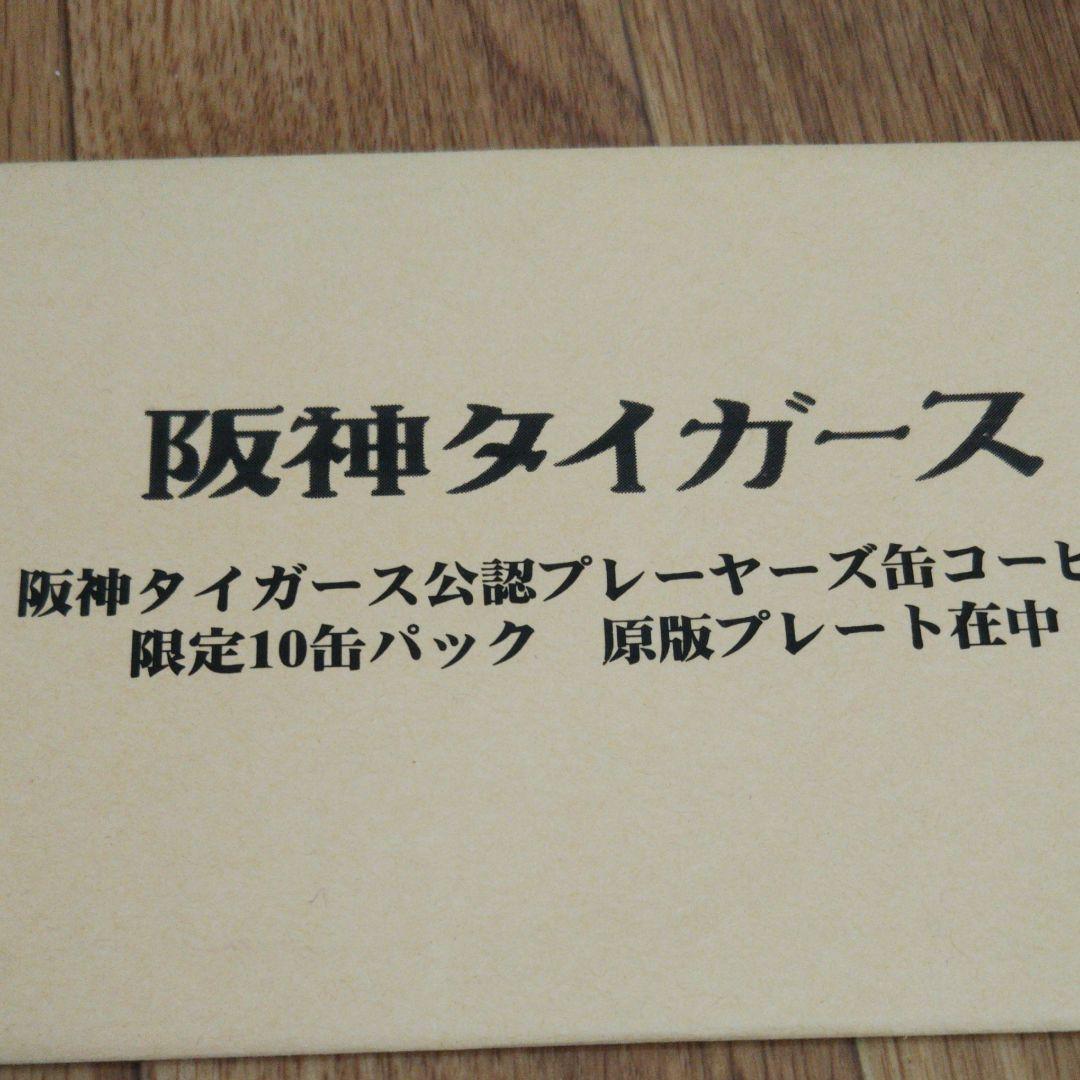 阪神タイガース
阪神タイガース公認プレーヤーズ缶コーヒ
限定10缶パック 原版プレート在中